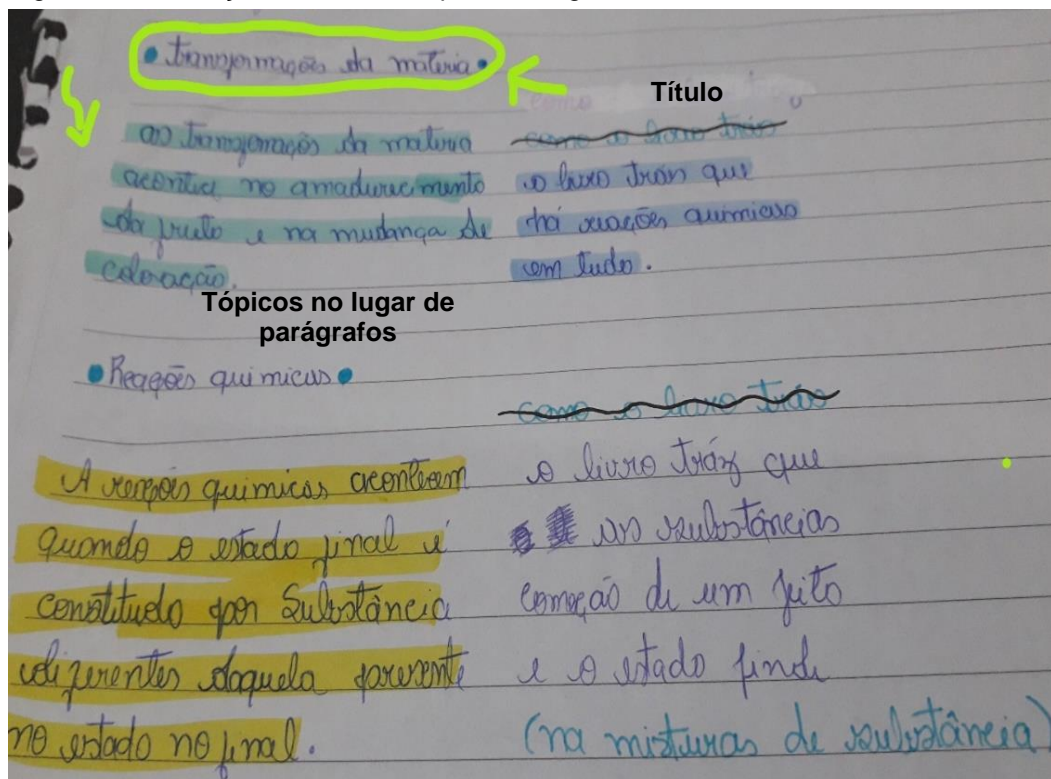 • transformações da materia •
Título
como o livro tráz
as transformações da materia
acontece no amadurecimento
da fruto e na mudança de
coloração.
o livro trás que
há reações quimicas
em tudo.
Tópicos no lugar de
parágrafos
• Reações quimicas •
como o livro tráz
A reações quimicas acontecem
quando o estado final é
constituido por Substância
diferentes daquela presente
no estado no final.
o livro tráz que
as substâncias
começão de um jeito
e o estado finde
(na misturas de substância)